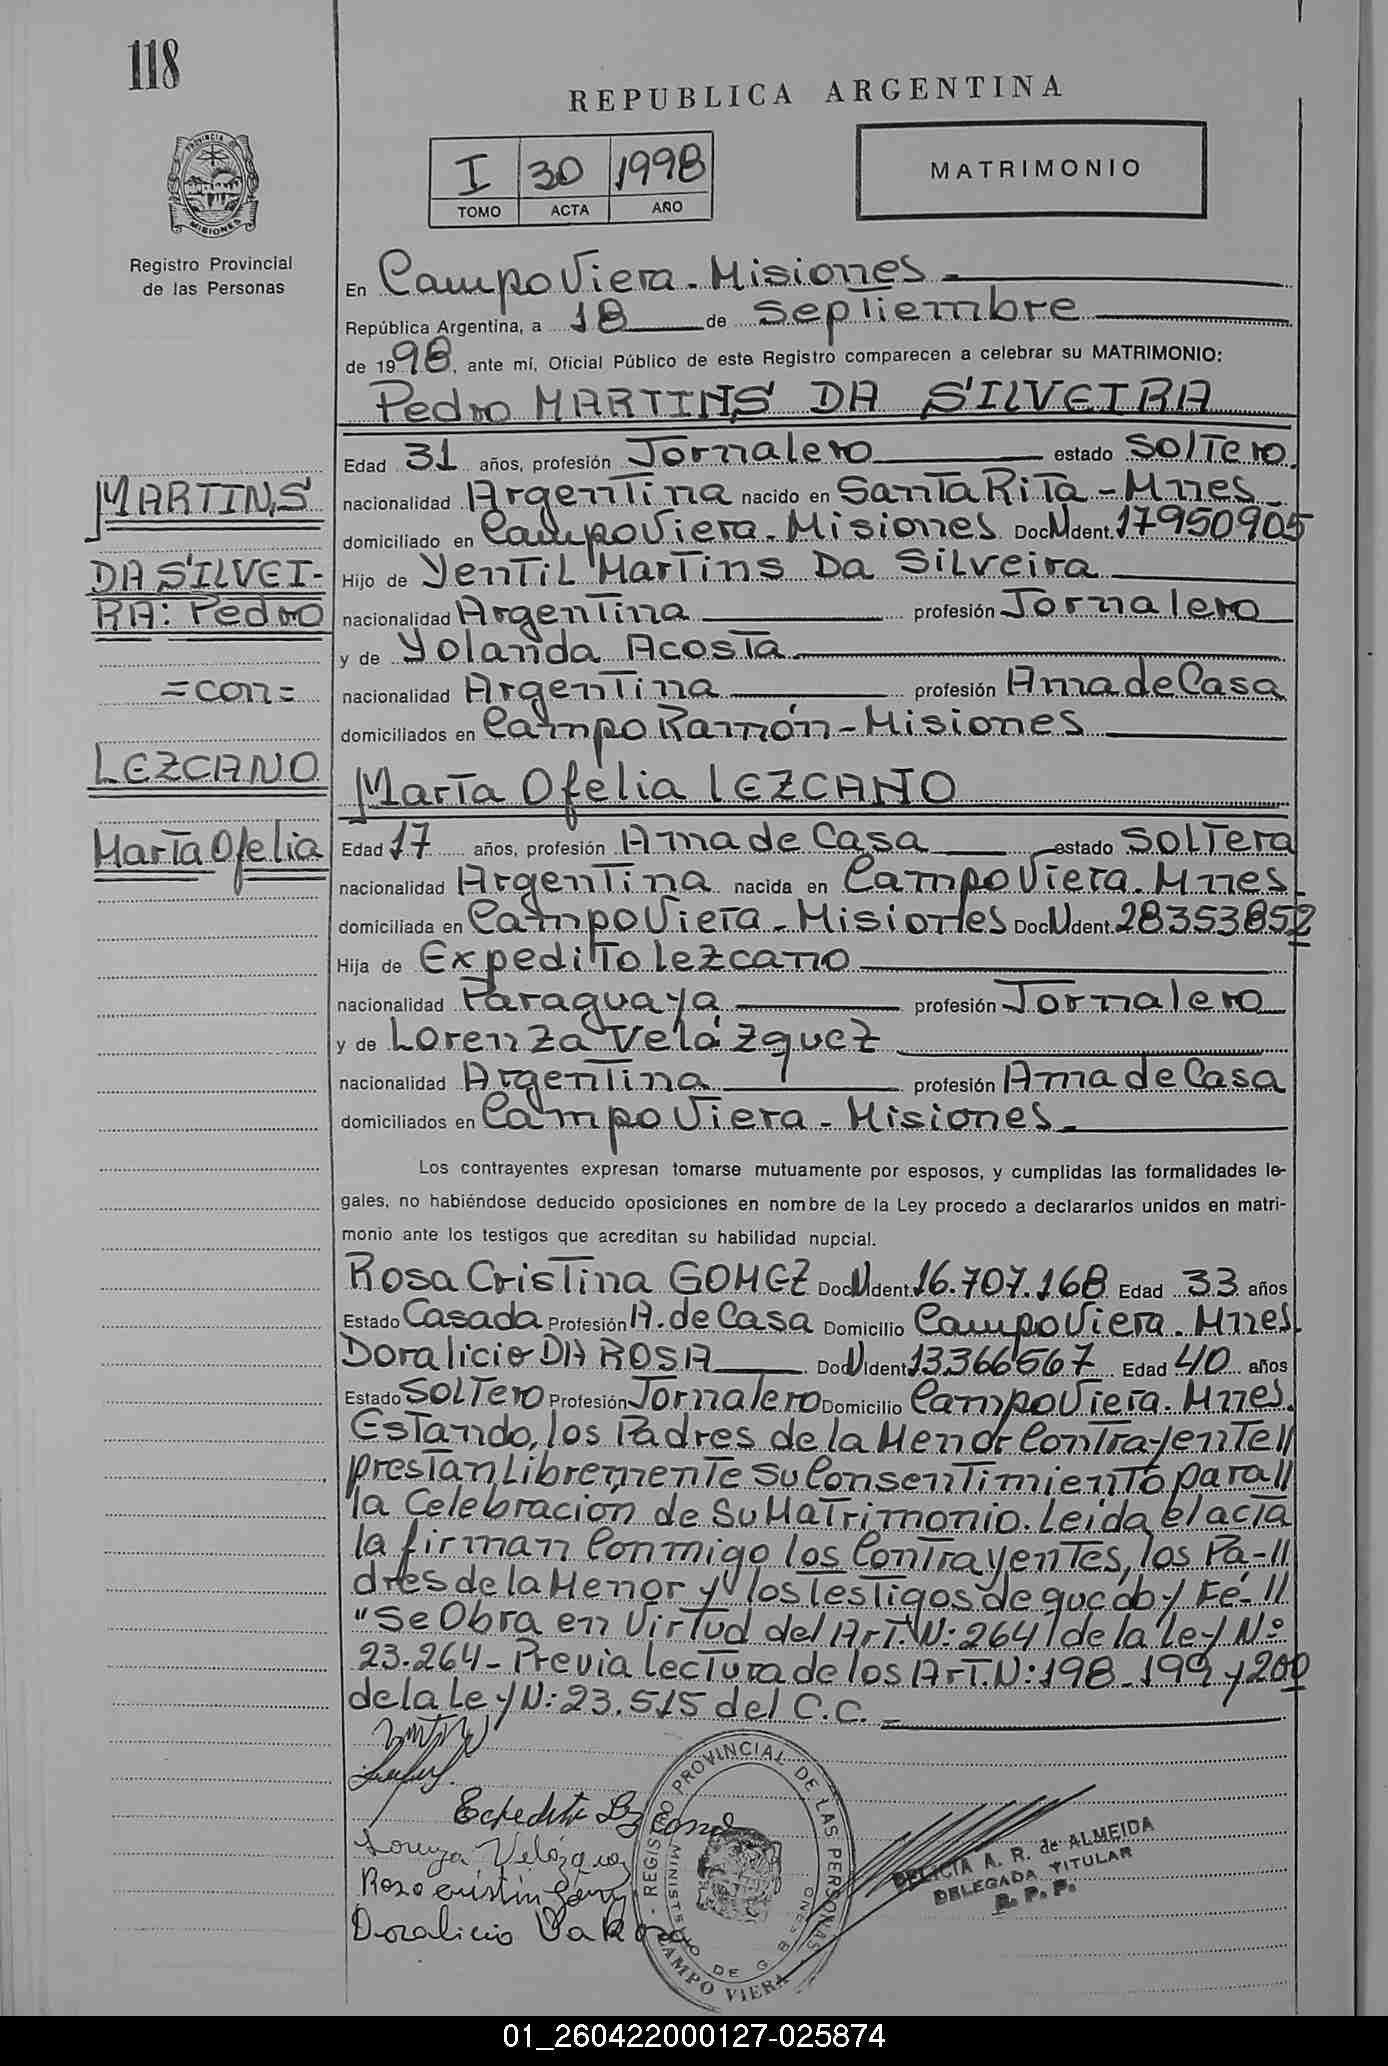 118
REPUBLICA ARGENTINA
I 30 1998
TOMO ACTA AÑO
MATRIMONIO
PROVINCIA DE MISIONES
Registro Provincial
de las Personas
En Campo Viera - Misiones
República Argentina, a 18 de septiembre
de 1998, ante mí, Oficial Público de este Registro comparecen a celebrar su MATRIMONIO:
Pedro MARTINS DA SILVEIRA
Edad 31 años, profesión Jornalero estado Soltero
nacionalidad Argentina nacido en Santa Rita - Mnes
domiciliado en Campo Viera - Misiones Doc. N. Ident. 17950905
Hijo de Yentil Martins Da Silveira
nacionalidad Argentina profesión Jornalero
y de Yolanda Acosta
nacionalidad Argentina profesión Ama de Casa
domiciliados en Campo Ramón - Misiones
MARTINS
DA SILVEI-
RA: Pedro
=con=
LEZCANO
Marta Ofelia
Marta Ofelia LEZCANO
Edad 17 años, profesión Ama de Casa estado Soltera
nacionalidad Argentina nacida en Campo Viera - Mnes.
domiciliada en Campo Viera - Misiones Doc. N. Ident. 28353852
Hija de Expedito Lezcano
nacionalidad Paraguaya profesión Jornalero
y de Lorenza Velázquez
nacionalidad Argentina profesión Ama de Casa
domiciliados en Campo Viera - Misiones
Los contrayentes expresan tomarse mutuamente por esposos, y cumplidas las formalidades le-
gales, no habiéndose deducido oposiciones en nombre de la Ley procedo a declararlos unidos en matri-
monio ante los testigos que acreditan su habilidad nupcial.
Rosa Cristina GOMEZ Doc. N. Ident. 16.707.168 Edad 33 años
Estado Casada Profesión A. de Casa Domicilio Campo Viera - Mnes.
Doralicio DA ROSA Doc. N. Ident. 13366567 Edad 40 años
Estado Soltero Profesión Jornalero Domicilio Campo Viera. Mnes.
Estando, los Padres de la Menor Contrayente//
prestan Libremente su Consentimiento para//
la Celebración de Su Matrimonio. Leída el acta
la firman Conmigo los Contrayentes, los Pa-//
dres de la Menor y los Testigos de que doy Fé-//
"Se Obra en Virtud del Art. N: 264 de la Ley Nº
23.264 - Previa lectura de los Art. N: 198 - 199 y 200
de la Ley N: 23.515 del C.C.
Lorenza Velázquez
Doralicio Da Rosa
REGISTRO PROVINCIAL DE LAS PERSONAS
CAMPO VIERA
DELICIA A. R. de ALMEIDA
DELEGADA TITULAR
R. P. P.
01_260422000127-025874